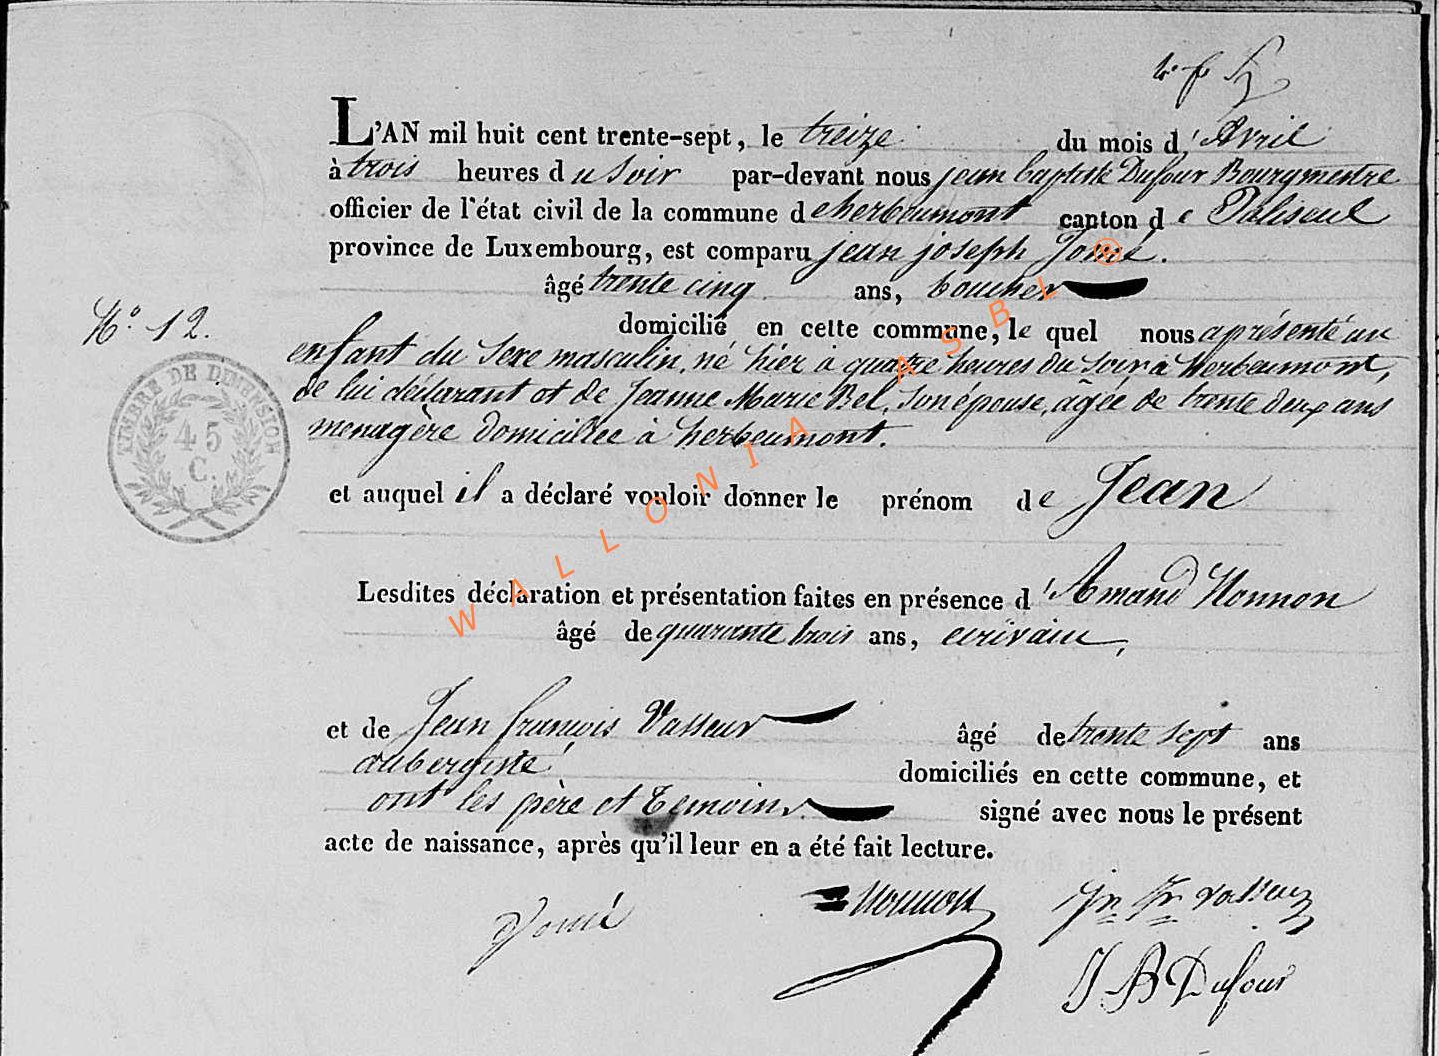 L'AN mil huit cent trente-sept, le treize du mois d'Avril
à trois heures du Soir par-devant nous jean baptiste Dufour Bourgmestre
officier de l'état civil de la commune d'herbeumont canton de Paliseul
province de Luxembourg, est comparu jean joseph Jomé.
âgé trente cinq ans, boucher
N.° 12. domicilié en cette commune, le quel nous a présenté un
enfant du Sexe masculin, né hier à quatre heures du Soir à Herbeumont,
de lui déclarant et de Jeanne Marie Bel, Son épouse, âgée de trente deux ans
menagère domiciliée à herbeumont.
TIMBRE DE DIMENSION
45
C.
et auquel il a déclaré vouloir donner le prénom de Jean
Lesdites déclaration et présentation faites en présence d'Amand Honnon
âgé de quarante trois ans, ecrivain,
et de Jean françois Vasseur âgé de trente sept ans
aubergiste domiciliés en cette commune, et
ont les père et Temoins signé avec nous le présent
acte de naissance, après qu'il leur en a été fait lecture.
Jomé Honnon Jn Fr Vasseur
J B Dufour
WALLONIA ASBL ®